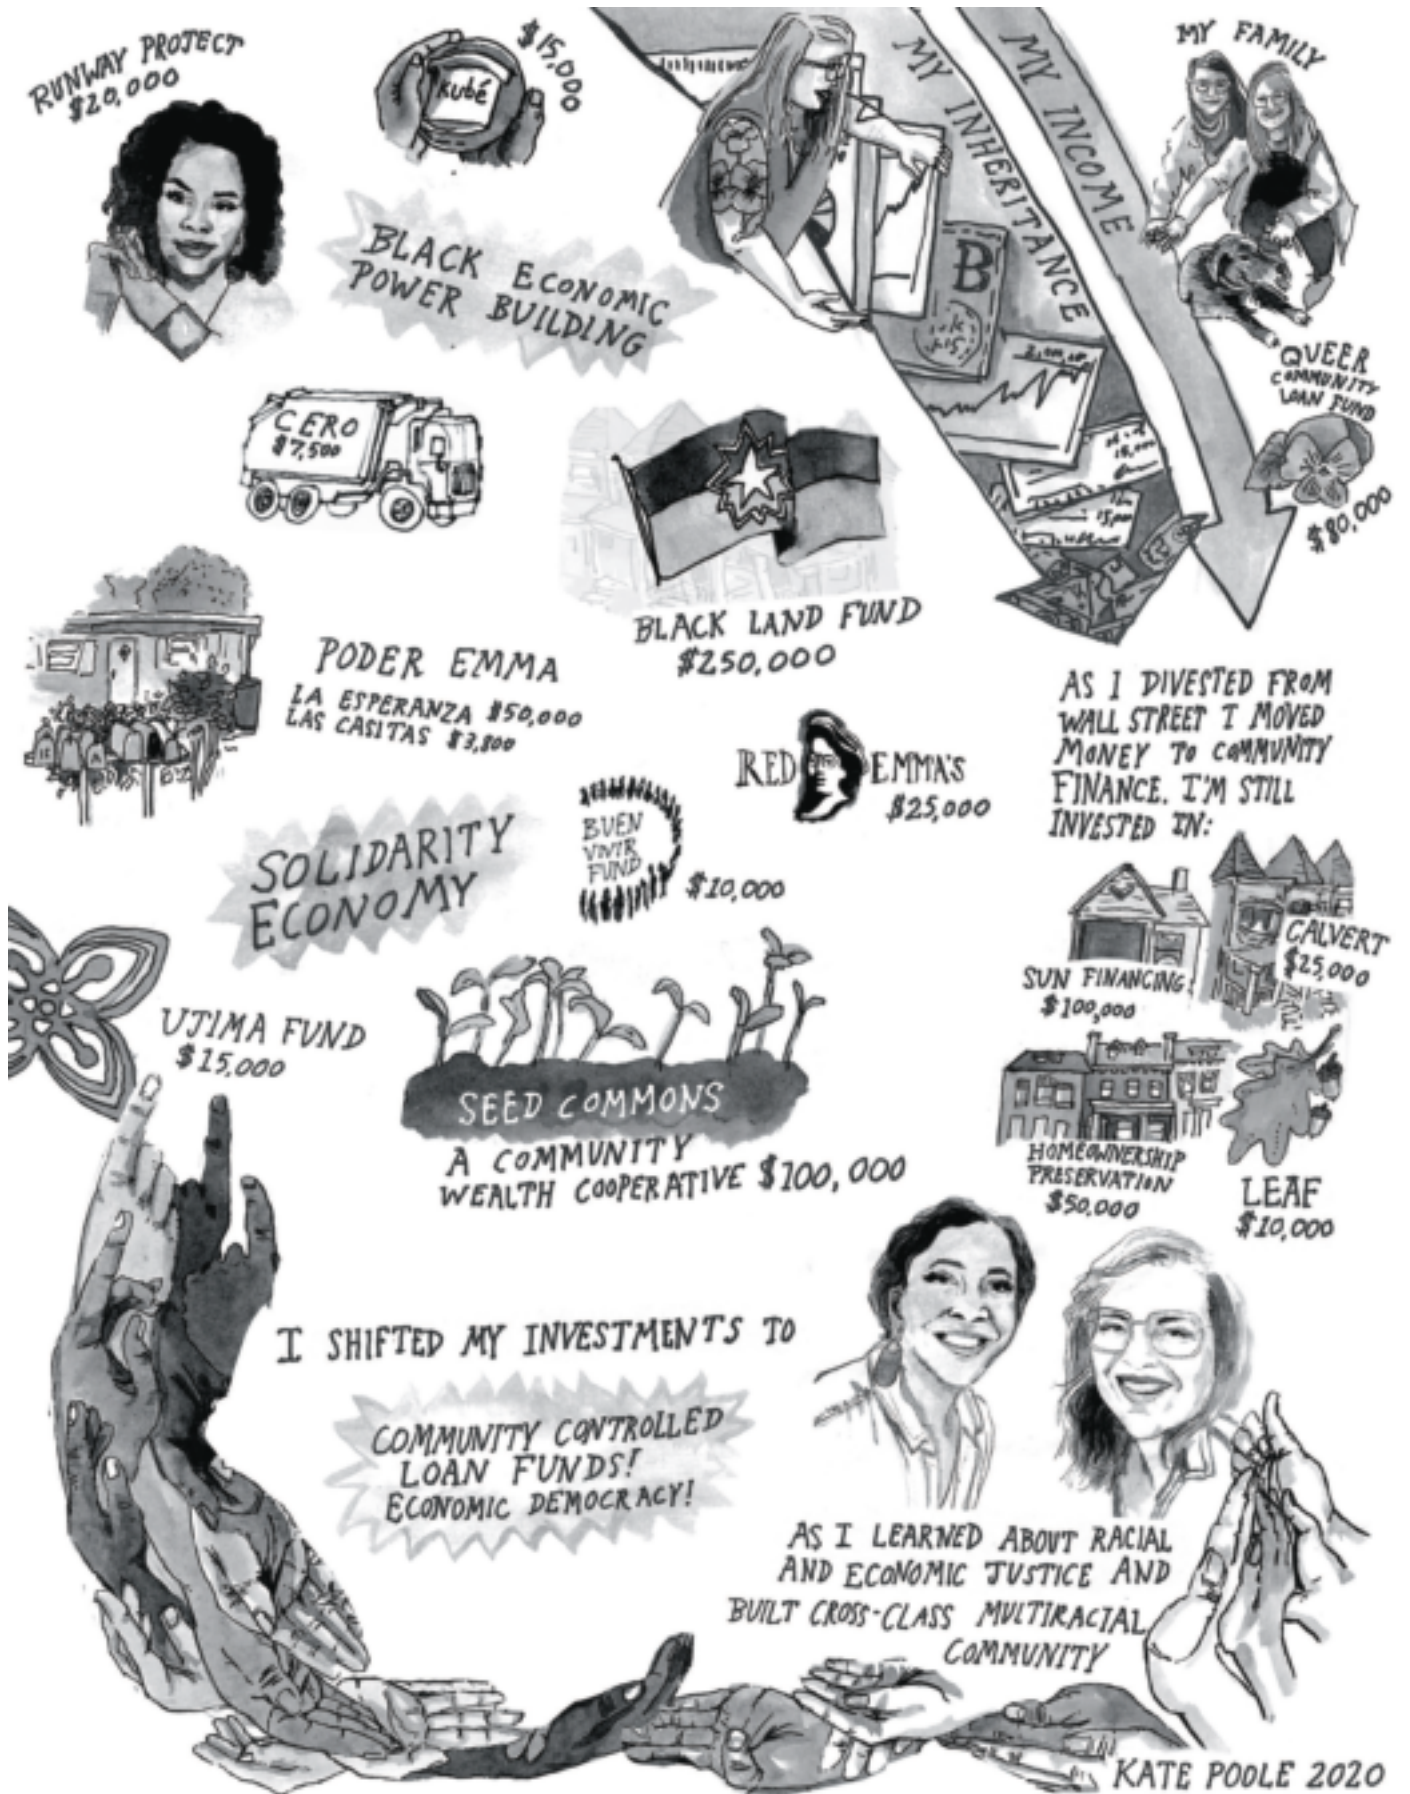 RUNWAY PROJECT
$20,000
kubé
$15,000
BLACK ECONOMIC
POWER BUILDING
MY INHERITANCE
MY INCOME
B
MY FAMILY
QUEER
COMMUNITY
LOAN FUND
$80,000
CERO
$7,500
BLACK LAND FUND
$250,000
PODER EMMA
LA ESPERANZA $50,000
LAS CASITAS $3,800
RED EMMA'S
$25,000
AS I DIVESTED FROM
WALL STREET I MOVED
MONEY TO COMMUNITY
FINANCE. I'M STILL
INVESTED IN:
SOLIDARITY
ECONOMY
BUEN
VIVIR
FUND
$10,000
CALVERT
$25,000
SUN FINANCING
$100,000
UJIMA FUND
$15,000
SEED COMMONS
A COMMUNITY
WEALTH COOPERATIVE $100,000
HOMEOWNERSHIP
PRESERVATION
$50,000
LEAF
$10,000
I SHIFTED MY INVESTMENTS TO
COMMUNITY CONTROLLED
LOAN FUNDS!
ECONOMIC DEMOCRACY!
AS I LEARNED ABOUT RACIAL
AND ECONOMIC JUSTICE AND
BUILT CROSS-CLASS MULTIRACIAL
COMMUNITY
KATE POOLE 2020